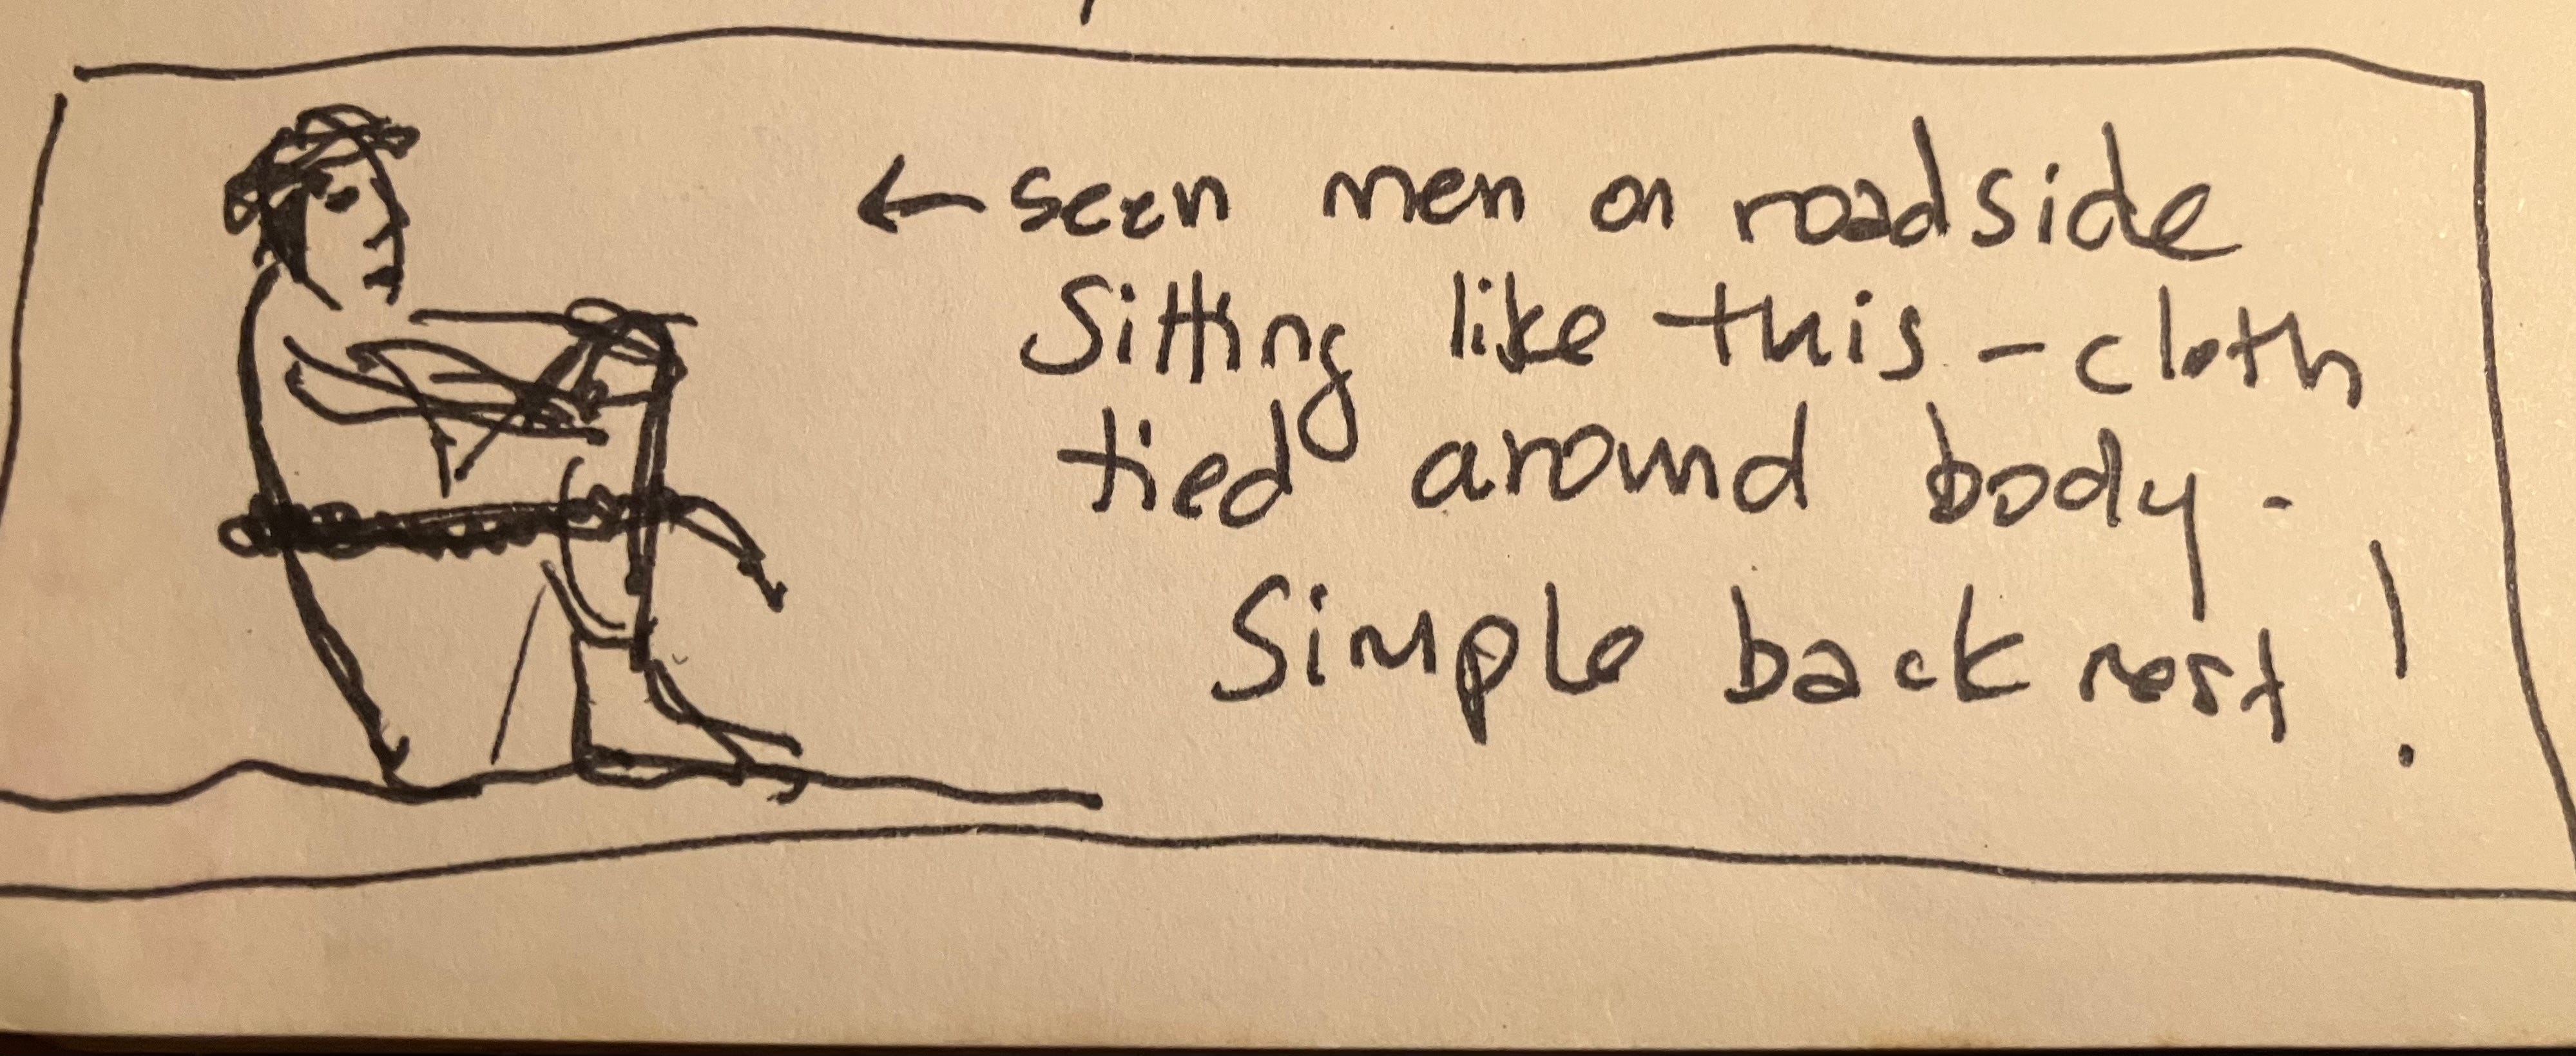 ← seen men on roadside
Sitting like this - cloth
tied around body.
Simple back rest!